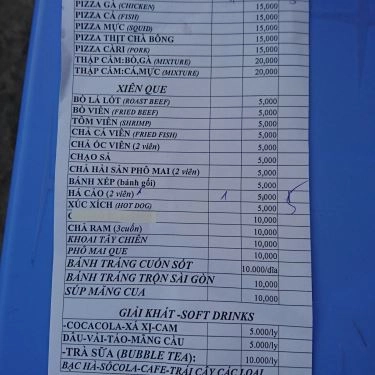 PIZZA GÀ (CHICKEN) 15,000
PIZZA CÁ (FISH) 15,000
PIZZA MỰC (SQUID) 15,000
PIZZA THỊT CHÀ BÔNG 15,000
PIZZA CÀRI (PORK) 15,000
THẬP CẨM:BÒ,GÀ (MIXTURE) 20,000
THẬP CẨM:CÁ,MỰC (MIXTURE) 20,000
XIÊN QUE
BÒ LÁ LỐT (ROAST BEEF) 5,000
BÒ VIÊN (FRIED BEEF) 5,000
TÔM VIÊN (SHRIMP) 5,000
CHẢ CÁ VIÊN (FRIED FISH) 5,000
CHẢ ỐC VIÊN (2 viên) 5,000
CHẠO SẢ 5,000
CHẢ HẢI SẢN PHÔ MAI (2 viên) 5,000
BÁNH XẾP (bánh gối) 5,000
HÁ CẢO (2 viên) 1 5,000 5
XÚC XÍCH (HOT DOG) 5,000
C 10,000
CHẢ RAM (3cuốn) 10,000
KHOAI TÂY CHIÊN 10,000
PHÔ MAI QUE 10,000
BÁNH TRÁNG CUỐN SỐT 10.000/dĩa
BÁNH TRÁNG TRỘN SÀI GÒN 10,000
SÚP MĂNG CUA 10,000
GIẢI KHÁT -SOFT DRINKS
-COCACOLA-XÁ XỊ-CAM 5.000/ly
DÂU-VẢI-TÁO-MÃNG CẦU 5.000/ly
-TRÀ SỮA (BUBBLE TEA): 10.000/ly
BẠC HÀ-SÔCOLA-CAFE-TRÁI CÂY CÁC LOẠI